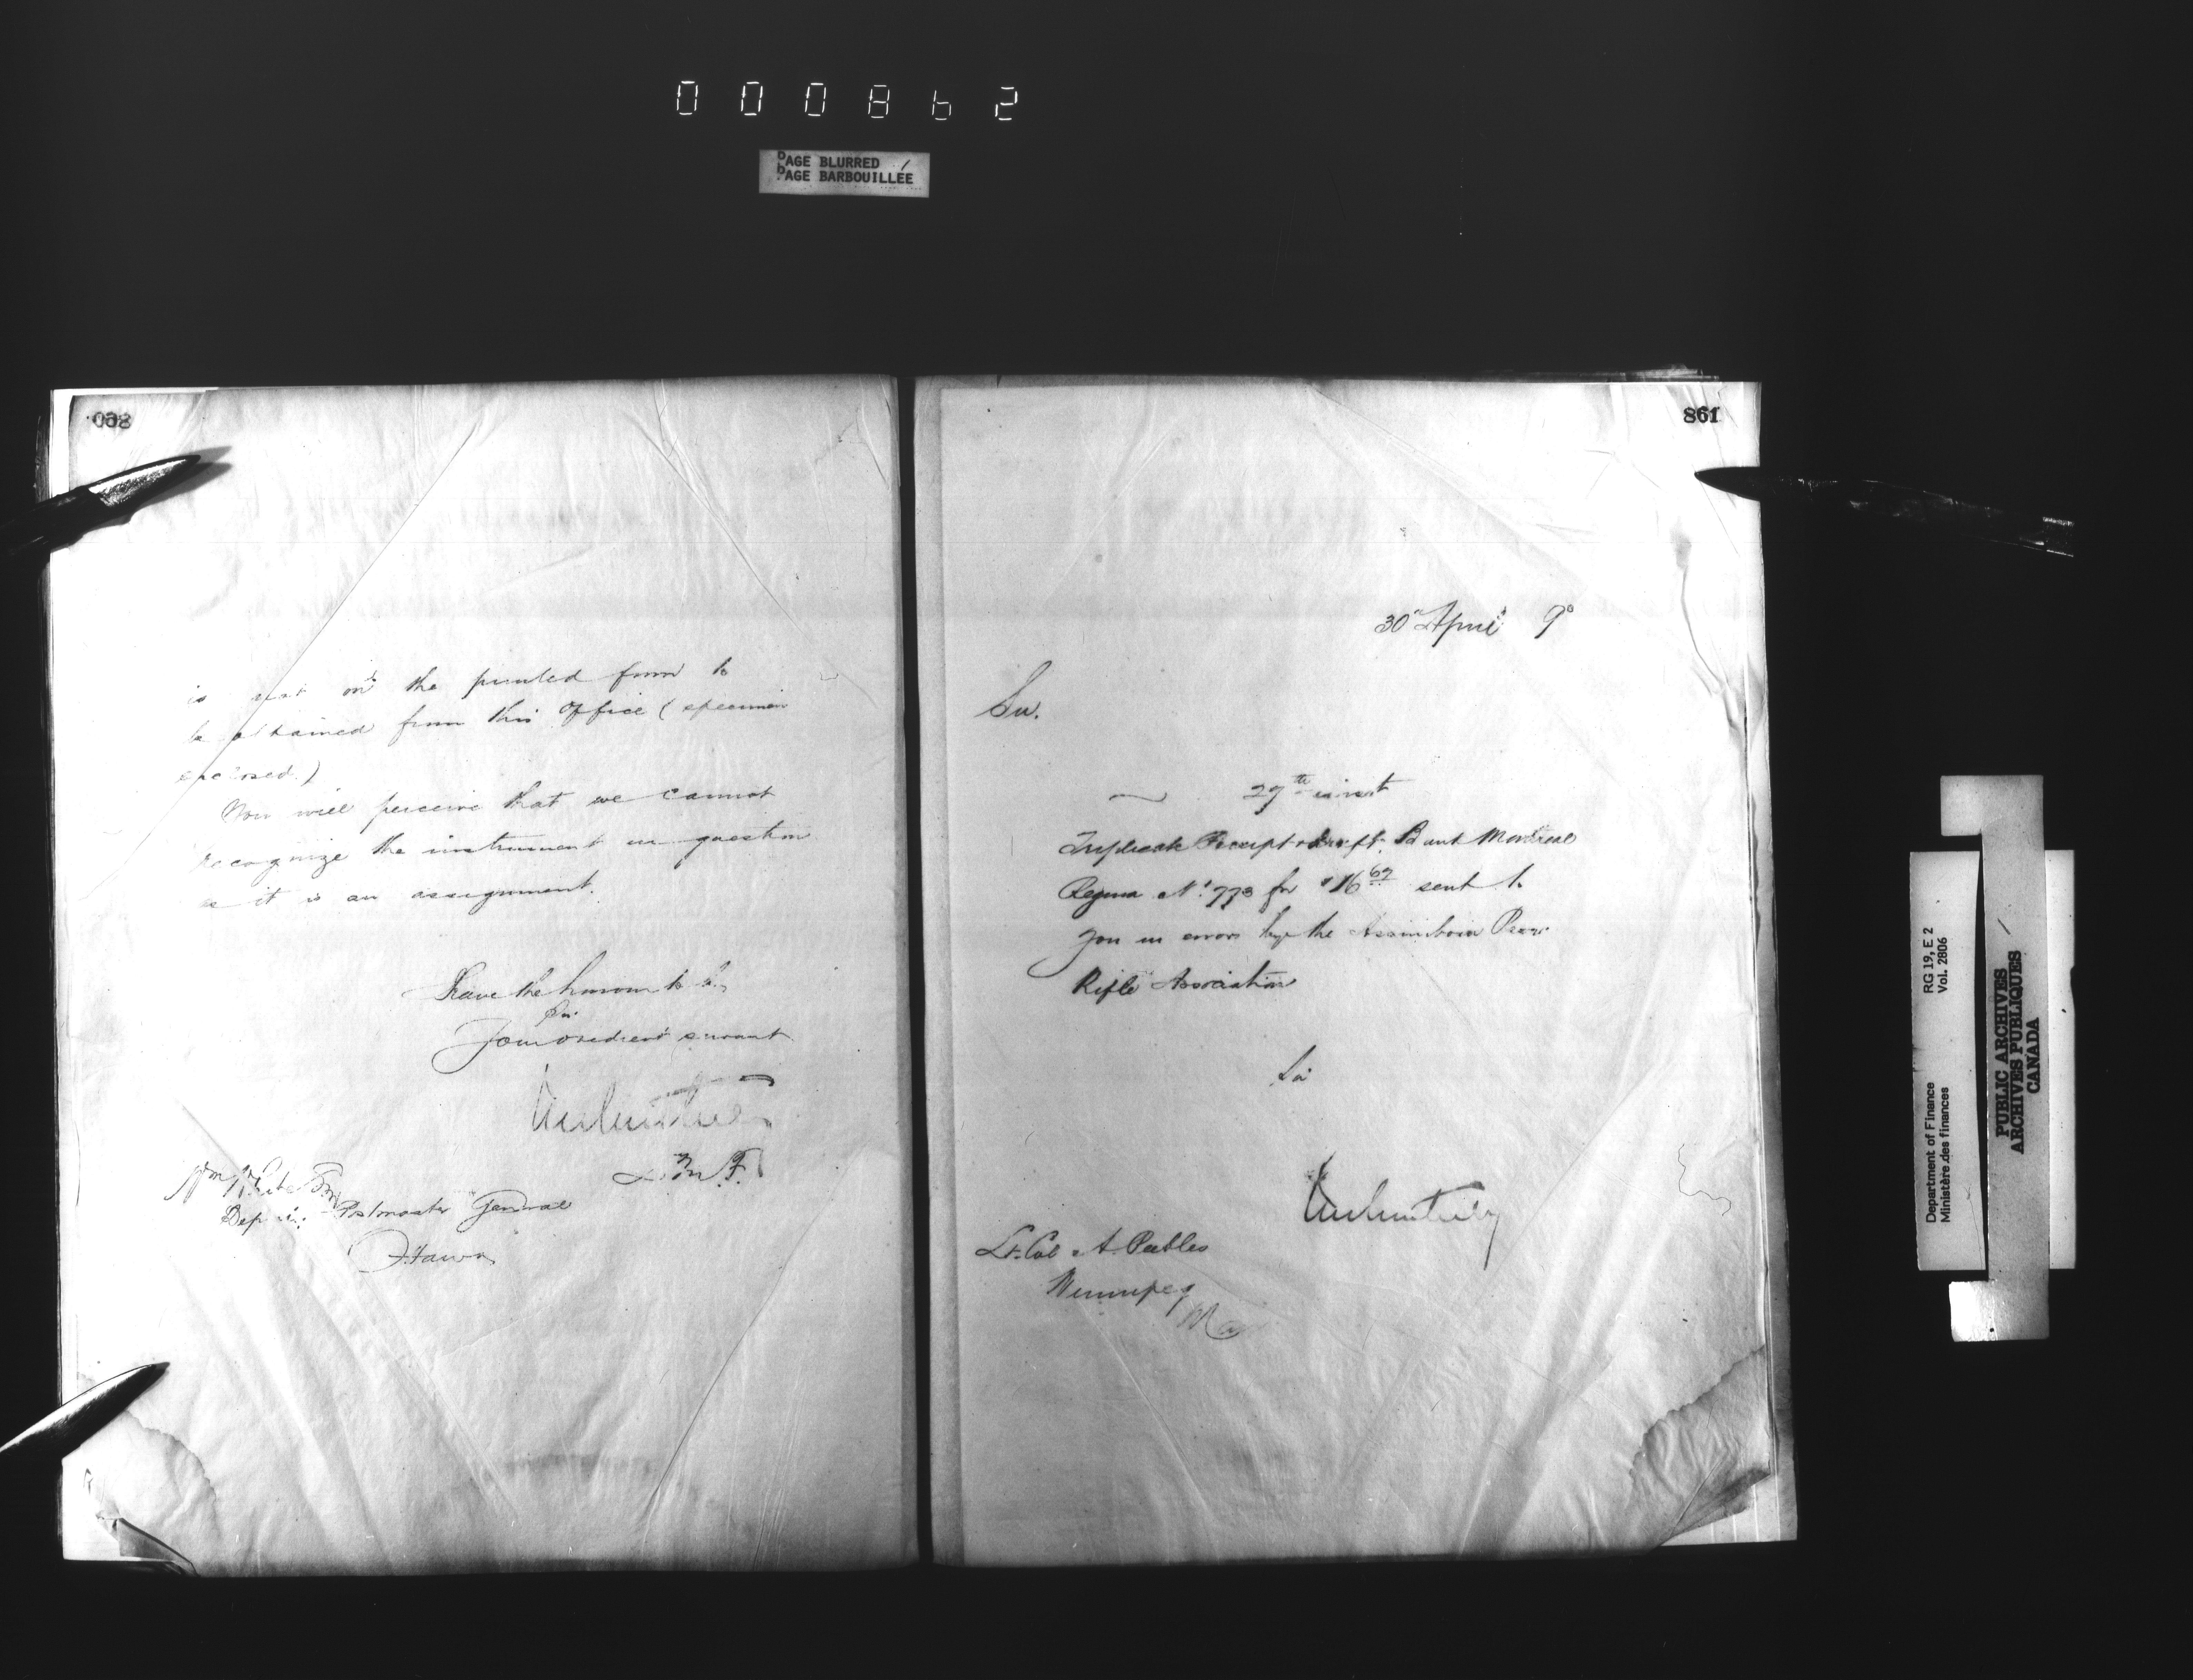 000862
PAGE BLURRED
PAGE BARBOUILLÉE
860
is not on the printed form to
be obtained from this office (specimen
enclosed.)
You will perceive that we cannot
recognize the instrument in question
as it is an assignment.
I have the honour to be
Sir
Your obedient servant
D M F.
Wm White Esq
Deputy Postmaster General
Ottawa
861
30th April 90
Sir.
29th inst
Triplicate Receipt & draft. Bank Montreal
Regina No. 773 for $16 67 sent to
you in error by the Assiniboia
Rifle Association
Sir
Lt. Col A. Peebles
Winnipeg
Ma
Department of Finance RG 19, E 2
Ministère des finances Vol. 2806
PUBLIC ARCHIVES
ARCHIVES PUBLIQUES
CANADA